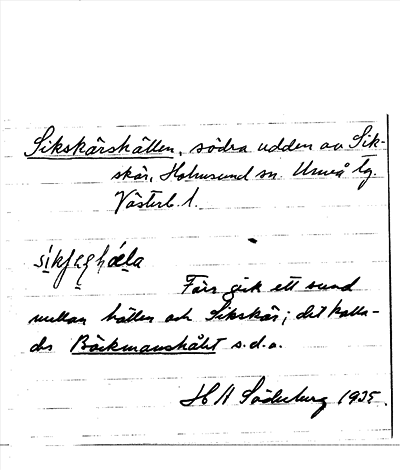 Sikskärshällen, södra udden av Sik-
skär, Holmsund sn. Umeå tg.
Västerb. l.
Förr gick ett sund
mellan hällen och Sikskär; det kalla-
des Böckmanshålet s.d.o.
H A Söderberg 1935.